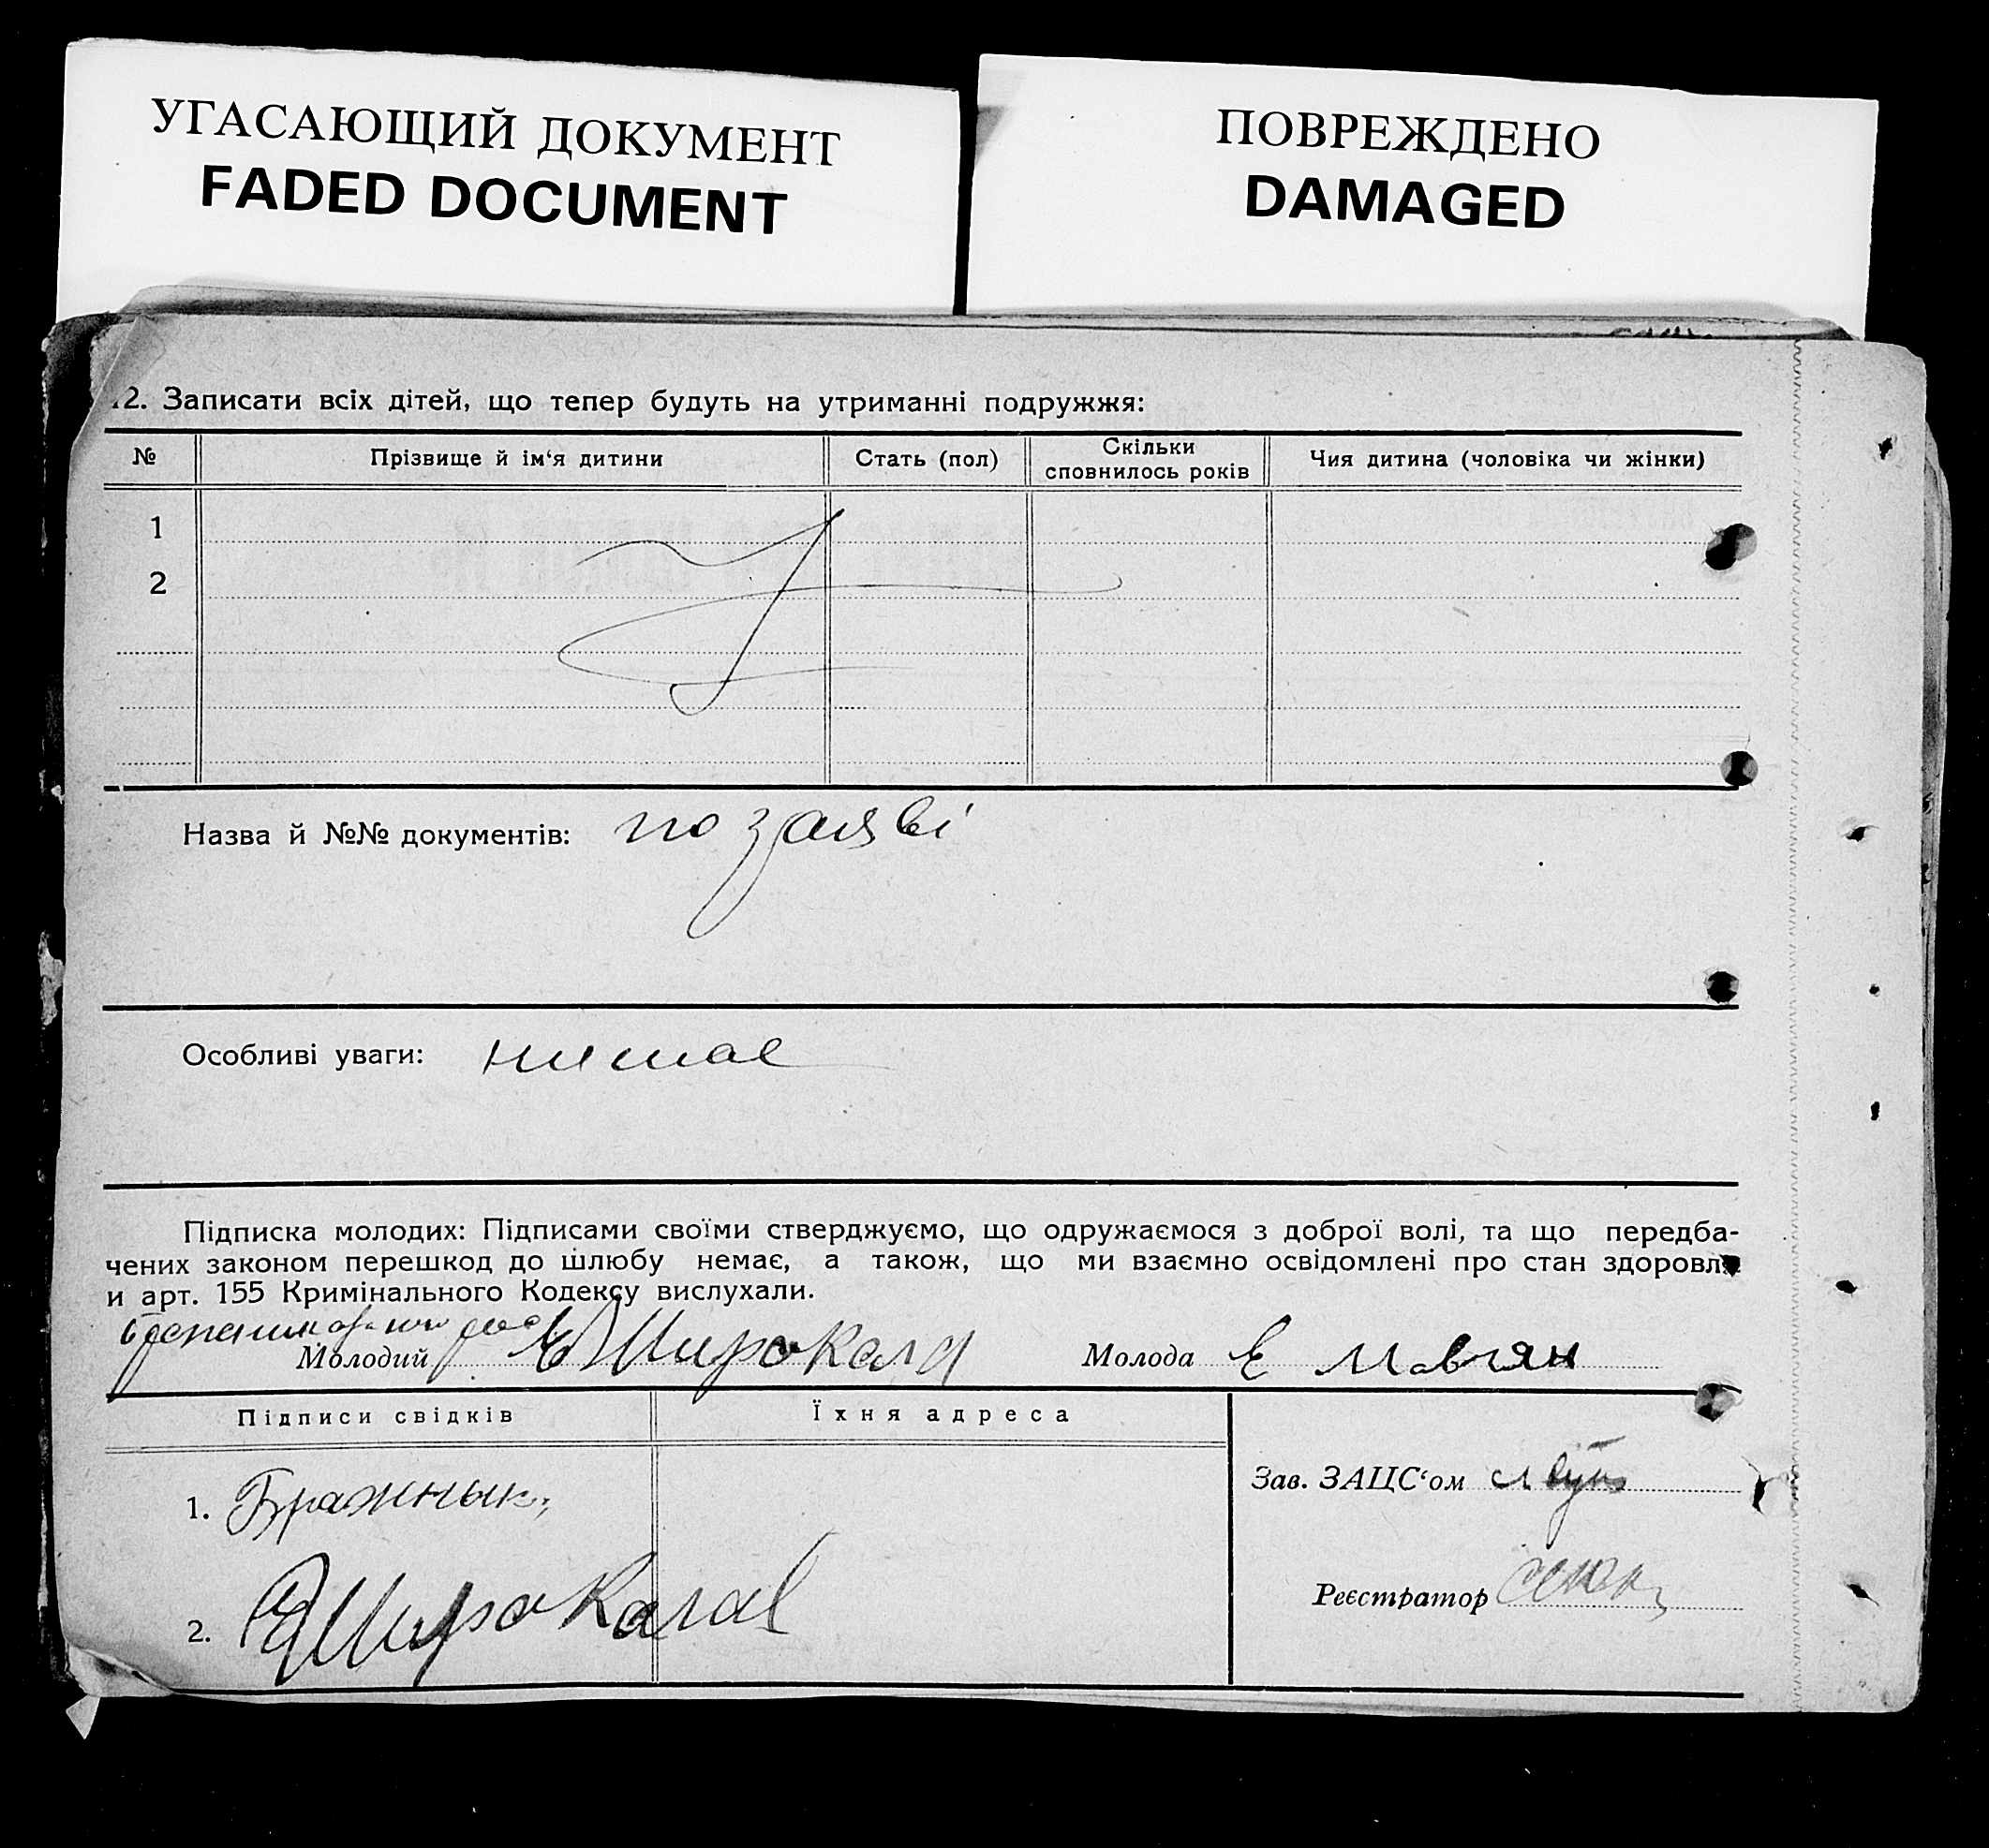 УГАСАЮЩИЙ ДОКУМЕНТ
FADED DOCUMENT
ПОВРЕЖДЕНО
DAMAGED
12. Записати всіх дітей, що тепер будуть на утриманні подружжя:
№ Прізвище й ім‘я дитини Стать (пол) Скільки сповнилось років Чия дитина (чоловіка чи жінки)
1
2
Назва й №№ документів: по заяві
Особливі уваги: нимае
Підписка молодих: Підписами своїми стверджуємо, що одружаємося з доброї волі, та що передба-
чених законом перешкод до шлюбу немає, а також, що ми взаємно освідомлені про стан здоровля
и арт. 155 Кримінального Кодексу вислухали.
Молодий Широкалд Молода Е
Підписи свідків Їхня адреса
1. Бражнык
2.
Зав. ЗАЦС‘ом
Реєстратор